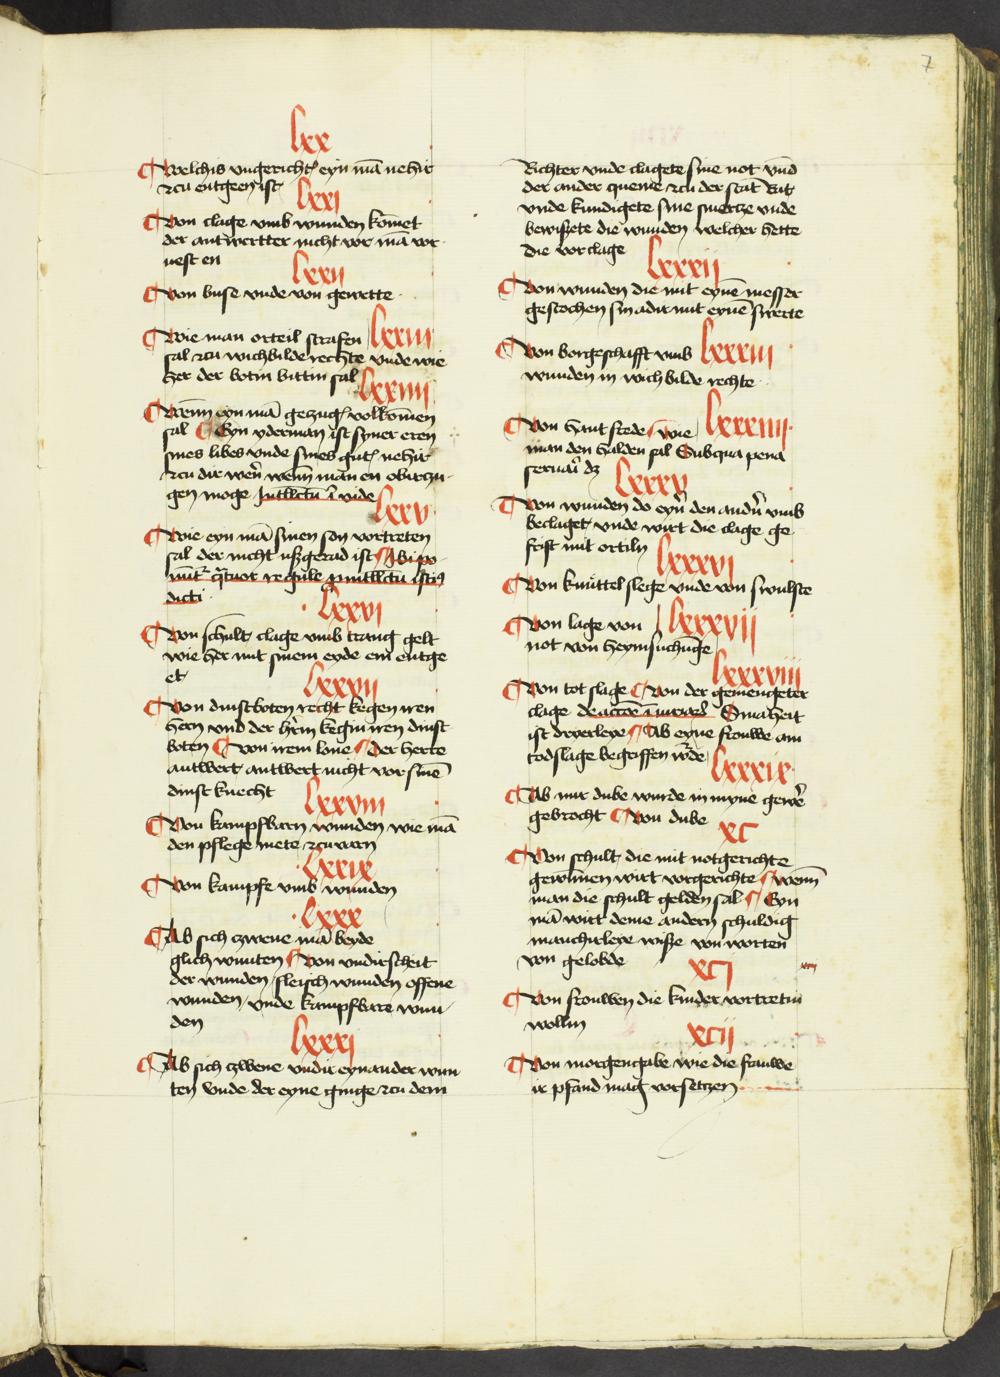 7
lxx
¶ Welchis vngericht eyn mā nehir
zcu entgeen ist
lxxi
¶ Von clage vmb wunden komet
der antwertter nicht vor mā vor
vest en
lxxii
¶ Von buse vnde von gewette
¶ Wie man orteil strafen lxxiii
sal zcu wichbilde rechte vnde wie
her der botin bittin sal
lxxiiii
¶ Wenn eyn mā gezug volkomen
sal ¶ Eyn yderman ist syner eren
sines libes vnde sines gut nehir
zcu
wenn man en obirczu-
gen moge
lxxv
¶ Wie eyn mā sinen son vortreten
sal der nicht ußgerad ist
dicti
lxxvi
¶ Von schult clage vmb trang gelt
wie her mit sinem eyde em entge
et
lxxvii
¶ Von dinstboten recht kegen iren
hern vnd der hrin kegin iren dinst
boten ¶ Von irem lone ¶ Der herre
antwert antwert nicht vor sinē
dinst knecht
lxxviii
¶ Von kampfbarn wunden wie mā
den pflege mete zcuvarn
lxxix
¶ Von kampfe vmb wunden
lxxx
¶ Ab sich czwene mā beyde
glich wunten ¶ Von vndirscheit
der wunden fleisch wunden offene
wunden vnde kampfbare wun-
den
lxxxi
¶ Ab sich czwene vndir eynander wun
ten vnde der eyne ginge zcu dem
Richter vnde clagete sine not vnd
der ander queme zcu der stat Rat
vnde kundigete sine smercze vnde
bewisete die wunden welcher hette
die vorclage
lxxxii
¶ Von wunden die mit eynē messer
gestochen sin adir mit eynē swerte
¶ Von borgeschafft vmb lxxxiii
wunden in wichbilde rechte
¶ Von hant frede ¶ wie lxxxiiii
man den halden sal Sub qua pena
lxxxv
¶ Von wunden do eyn den andn vmb
beclaget vnde wirt die clage ge-
frist mit ortiln
lxxxvi
¶ Von knuttel slege vnde von swulste
¶ Von lage von lxxxvii
not von heymsuchunge
lxxxviii
¶ Von tot slage ¶ Von der gemengeter
clage
ist dryerleye ¶ Ab eyne frouwe am
todslage begriffen wrde
lxxxix
¶ Ab mir dube wurde in myne gewere
gebrocht ¶ Von dube
xc
¶ Von schult die mit notgerichte
gewunnen wirt vorgerichte ¶ wenn
man die schult gelden sal ¶ Eyn
mā wirt deme andern schuldig
mancherleye wiße von worten
von gelobde
xci
¶ Von frouwen die kinder vortretin
wollin
xcii
¶ Von morgengabe wie die frauwe
ir pfand mag vorsetczen